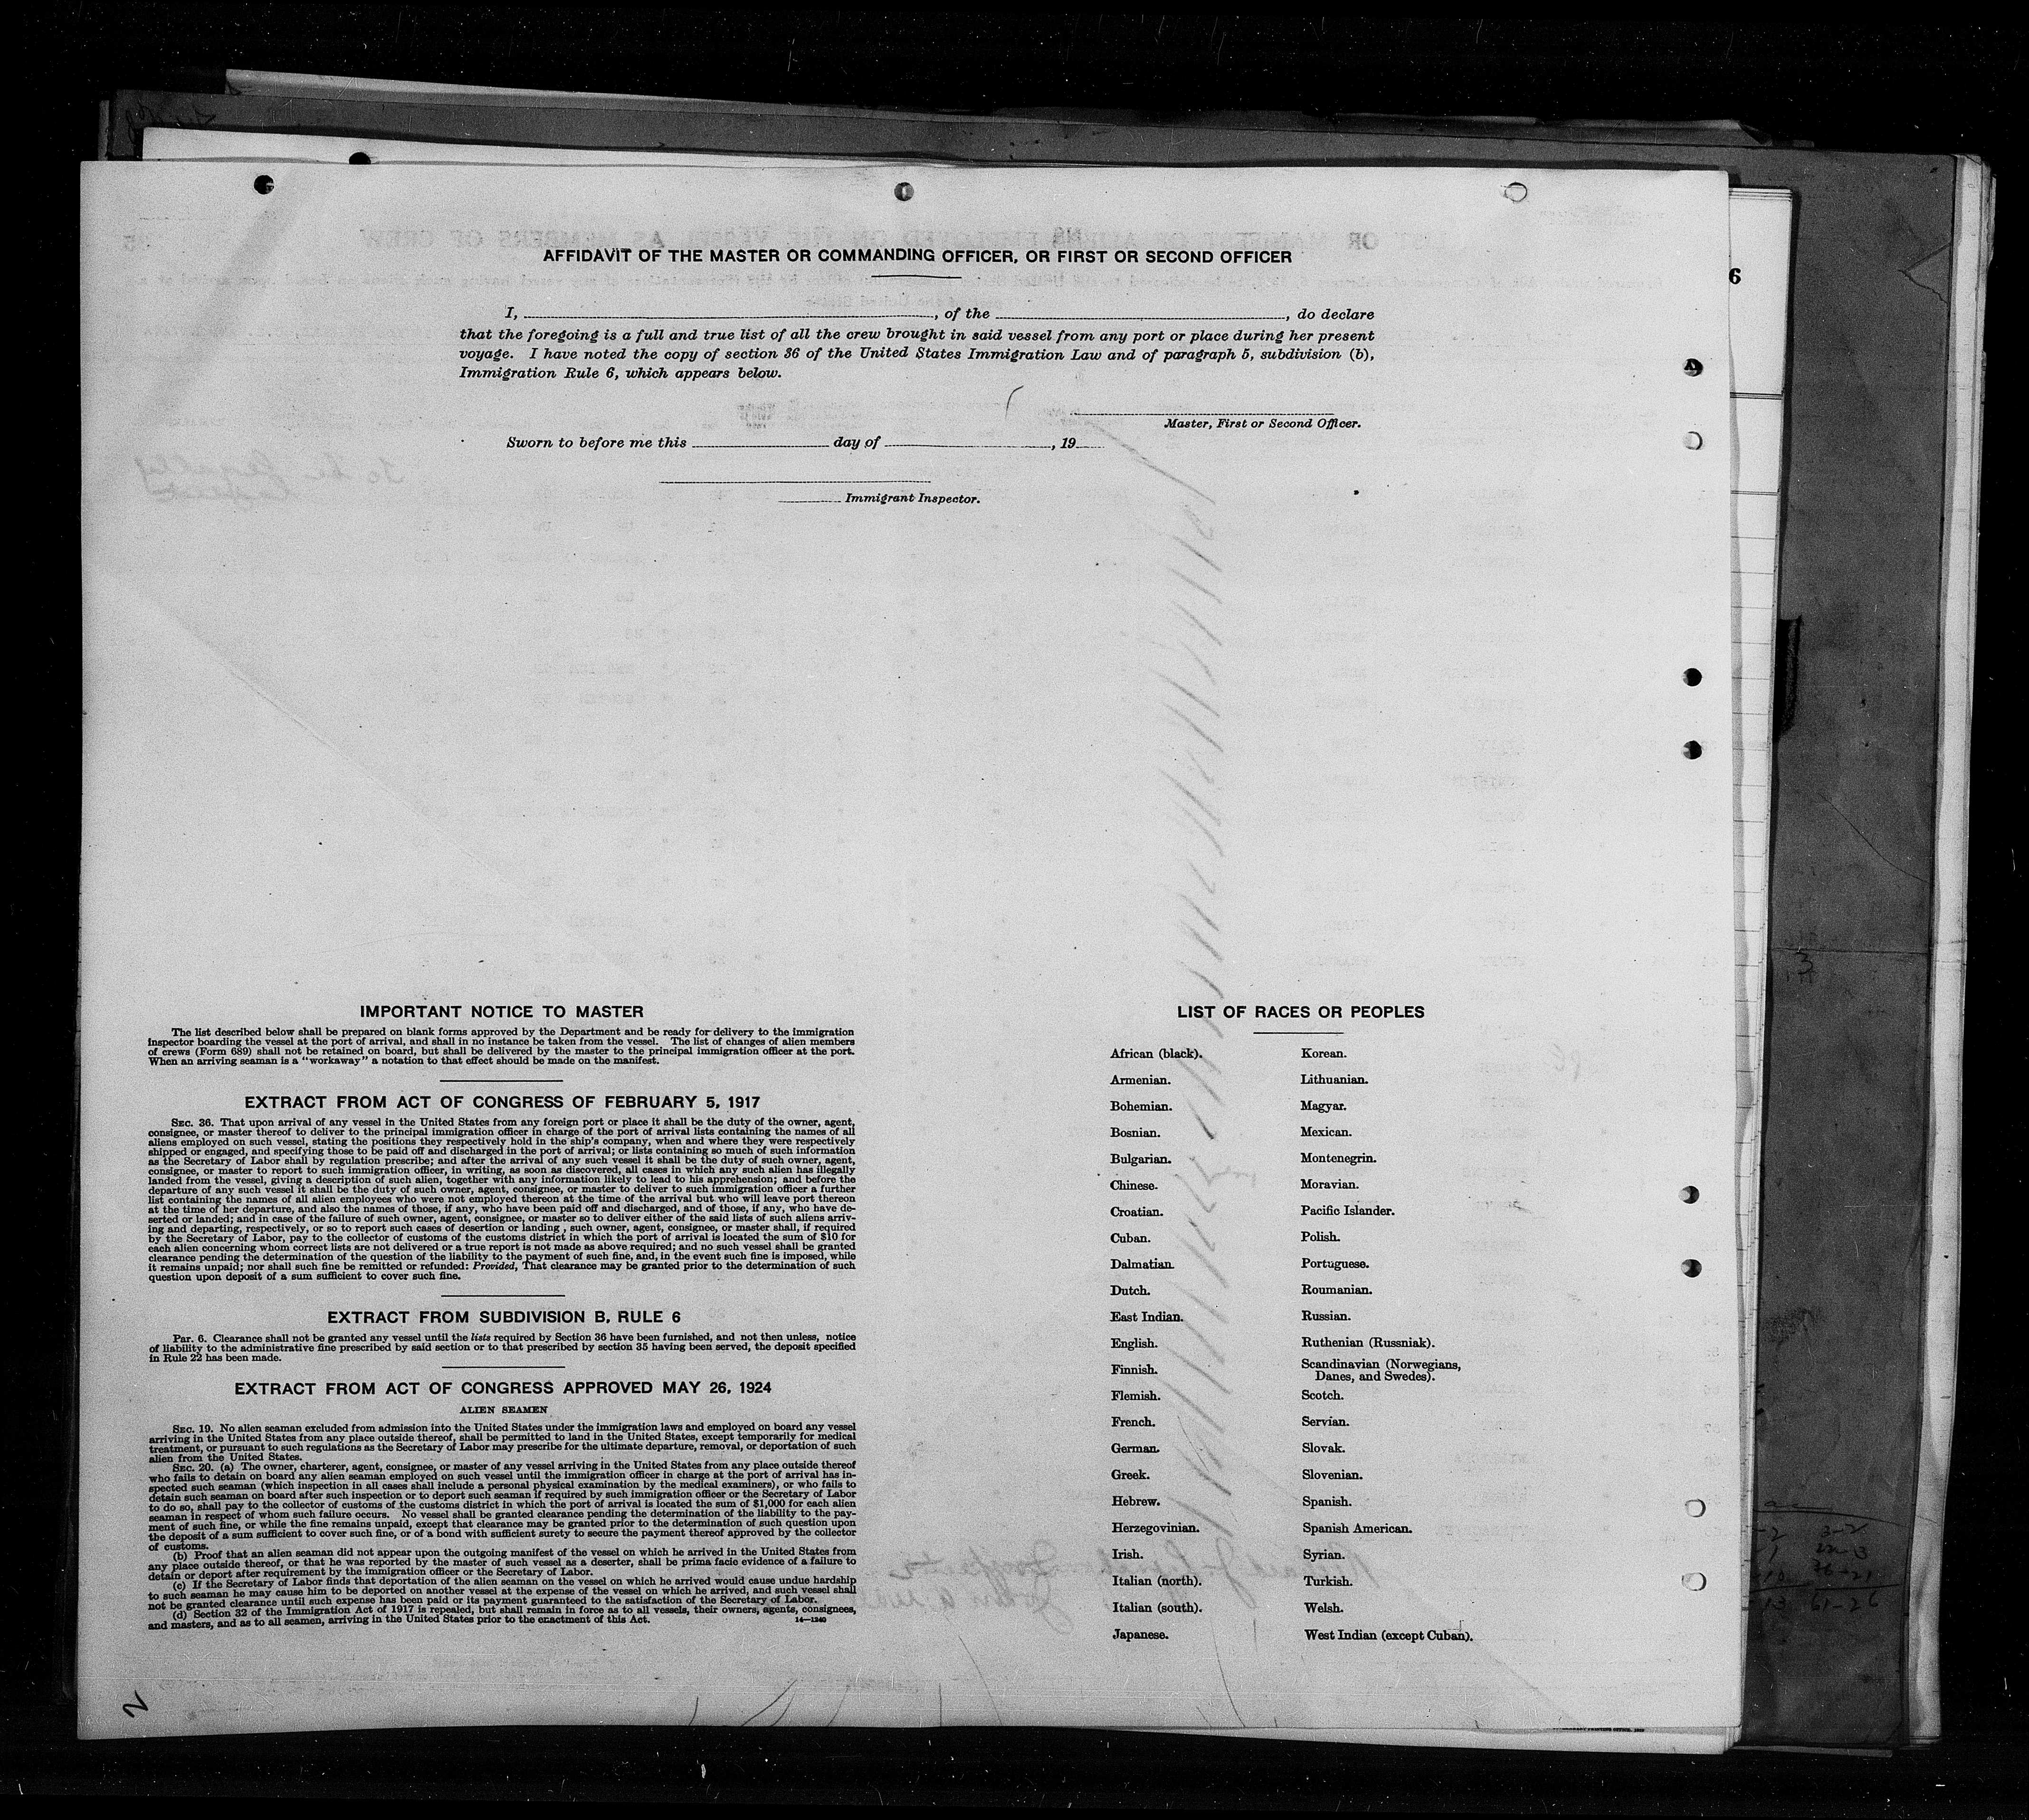 AFFIDAVIT OF THE MASTER OR COMMANDING OFFICER, OR FIRST OR SECOND OFFICER
I, , of the , do declare
that the foregoing is a full and true list of all the crew brought in said vessel from any port or place during her present
voyage. I have noted the copy of section 36 of the United States Immigration Law and of paragraph 5, subdivision (b),
Immigration Rule 6, which appears below.
Master, First or Second Officer.
Sworn to before me this day of , 19
Immigrant Inspector.
6
IMPORTANT NOTICE TO MASTER
The list described below shall be prepared on blank forms approved by the Department and be ready for delivery to the immigration
inspector boarding the vessel at the port of arrival, and shall in no instance be taken from the vessel. The list of changes of alien members
of crews (Form 689) shall not be retained on board, but shall be delivered by the master to the principal immigration officer at the port.
When an arriving seaman is a "workaway" a notation to that effect should be made on the manifest.
EXTRACT FROM ACT OF CONGRESS OF FEBRUARY 5, 1917
SEC. 36. That upon arrival of any vessel in the United States from any foreign port or place it shall be the duty of the owner, agent,
consignee, or master thereof to deliver to the principal immigration officer in charge of the port of arrival lists containing the names of all
aliens employed on such vessel, stating the positions they respectively hold in the ship's company, when and where they were respectively
shipped or engaged, and specifying those to be paid off and discharged in the port of arrival; or lists containing so much of such information
as the Secretary of Labor shall by regulation prescribe; and after the arrival of any such vessel it shall be the duty of such owner, agent,
consignee, or master to report to such immigration officer, in writing, as soon as discovered, all cases in which any such alien has illegally
landed from the vessel, giving a description of such alien, together with any information likely to lead to his apprehension; and before the
departure of any such vessel it shall be the duty of such owner, agent, consignee, or master to deliver to such immigration officer a further
list containing the names of all alien employees who were not employed thereon at the time of the arrival but who will leave port thereon
at the time of her departure, and also the names of those, if any, who have been paid off and discharged, and of those, if any, who have de-
serted or landed; and in case of the failure of such owner, agent, consignee, or master so to deliver either of the said lists of such aliens arriv-
ing and departing, respectively, or so to report such cases of desertion or landing , such owner, agent, consignee, or master shall, if required
by the Secretary of Labor, pay to the collector of customs of the customs district in which the port of arrival is located the sum of $10 for
each alien concerning whom correct lists are not delivered or a true report is not made as above required; and no such vessel shall be granted
clearance pending the determination of the question of the liability to the payment of such fine, and, in the event such fine is imposed, while
it remains unpaid; nor shall such fine be remitted or refunded: Provided, That clearance may be granted prior to the determination of such
question upon deposit of a sum sufficient to cover such fine.
EXTRACT FROM SUBDIVISION B, RULE 6
Par. 6. Clearance shall not be granted any vessel until the lists required by Section 36 have been furnished, and not then unless, notice
of liability to the administrative fine prescribed by said section or to that prescribed by section 35 having been served, the deposit specified
in Rule 22 has been made.
EXTRACT FROM ACT OF CONGRESS APPROVED MAY 26, 1924
ALIEN SEAMEN
SEC. 19. No alien seaman excluded from admission into the United States under the immigration laws and employed on board any vessel
arriving in the United States from any place outside thereof, shall be permitted to land in the United States, except temporarily for medical
treatment, or pursuant to such regulations as the Secretary of Labor may prescribe for the ultimate departure, removal, or deportation of such
alien from the United States.
SEC. 20. (a) The owner, charterer, agent, consignee, or master of any vessel arriving in the United States from any place outside thereof
who fails to detain on board any alien seaman employed on such vessel until the immigration officer in charge at the port of arrival has in-
spected such seaman (which inspection in all cases shall include a personal physical examination by the medical examiners), or who fails to
detain such seaman on board after such inspection or to deport such seaman if required by such immigration officer or the Secretary of Labor
to do so, shall pay to the collector of customs of the customs district in which the port of arrival is located the sum of $1,000 for each alien
seaman in respect of whom such failure occurs. No vessel shall be granted clearance pending the determination of the liability to the pay-
ment of such fine, or while the fine remains unpaid, except that clearance may be granted prior to the determination of such question upon
the deposit of a sum sufficient to cover such fine, or of a bond with sufficient surety to secure the payment thereof approved by the collector
of customs.
(b) Proof that an alien seaman did not appear upon the outgoing manifest of the vessel on which he arrived in the United States from
any place outside thereof, or that he was reported by the master of such vessel as a deserter, shall be prima facie evidence of a failure to
detain or deport after requirement by the immigration officer or the Secretary of Labor.
(c) If the Secretary of Labor finds that deportation of the alien seaman on the vessel on which he arrived would cause undue hardship
to such seaman he may cause him to be deported on another vessel at the expense of the vessel on which he arrived, and such vessel shall
not be granted clearance until such expense has been paid or its payment guaranteed to the satisfaction of the Secretary of Labor.
(d) Section 32 of the Immigration Act of 1917 is repealed, but shall remain in force as to all vessels, their owners, agents, consignees,
and masters, and as to all seamen, arriving in the United States prior to the enactment of this Act. 14—1240
LIST OF RACES OR PEOPLES
African (black).
Armenian.
Bohemian.
Bosnian.
Bulgarian.
Chinese.
Croatian.
Cuban.
Dalmatian.
Dutch.
East Indian.
English.
Finnish.
Flemish.
French.
German.
Greek.
Hebrew.
Herzegovinian.
Irish.
Italian (north).
Italian (south).
Japanese.
Korean.
Lithuanian.
Magyar.
Mexican.
Montenegrin.
Moravian.
Pacific Islander.
Polish.
Portuguese.
Roumanian.
Russian.
Ruthenian (Russniak).
Scandinavian (Norwegians,
Danes, and Swedes).
Scotch.
Servian.
Slovak.
Slovenian.
Spanish.
Spanish American.
Syrian.
Turkish.
Welsh.
West Indian (except Cuban).
2